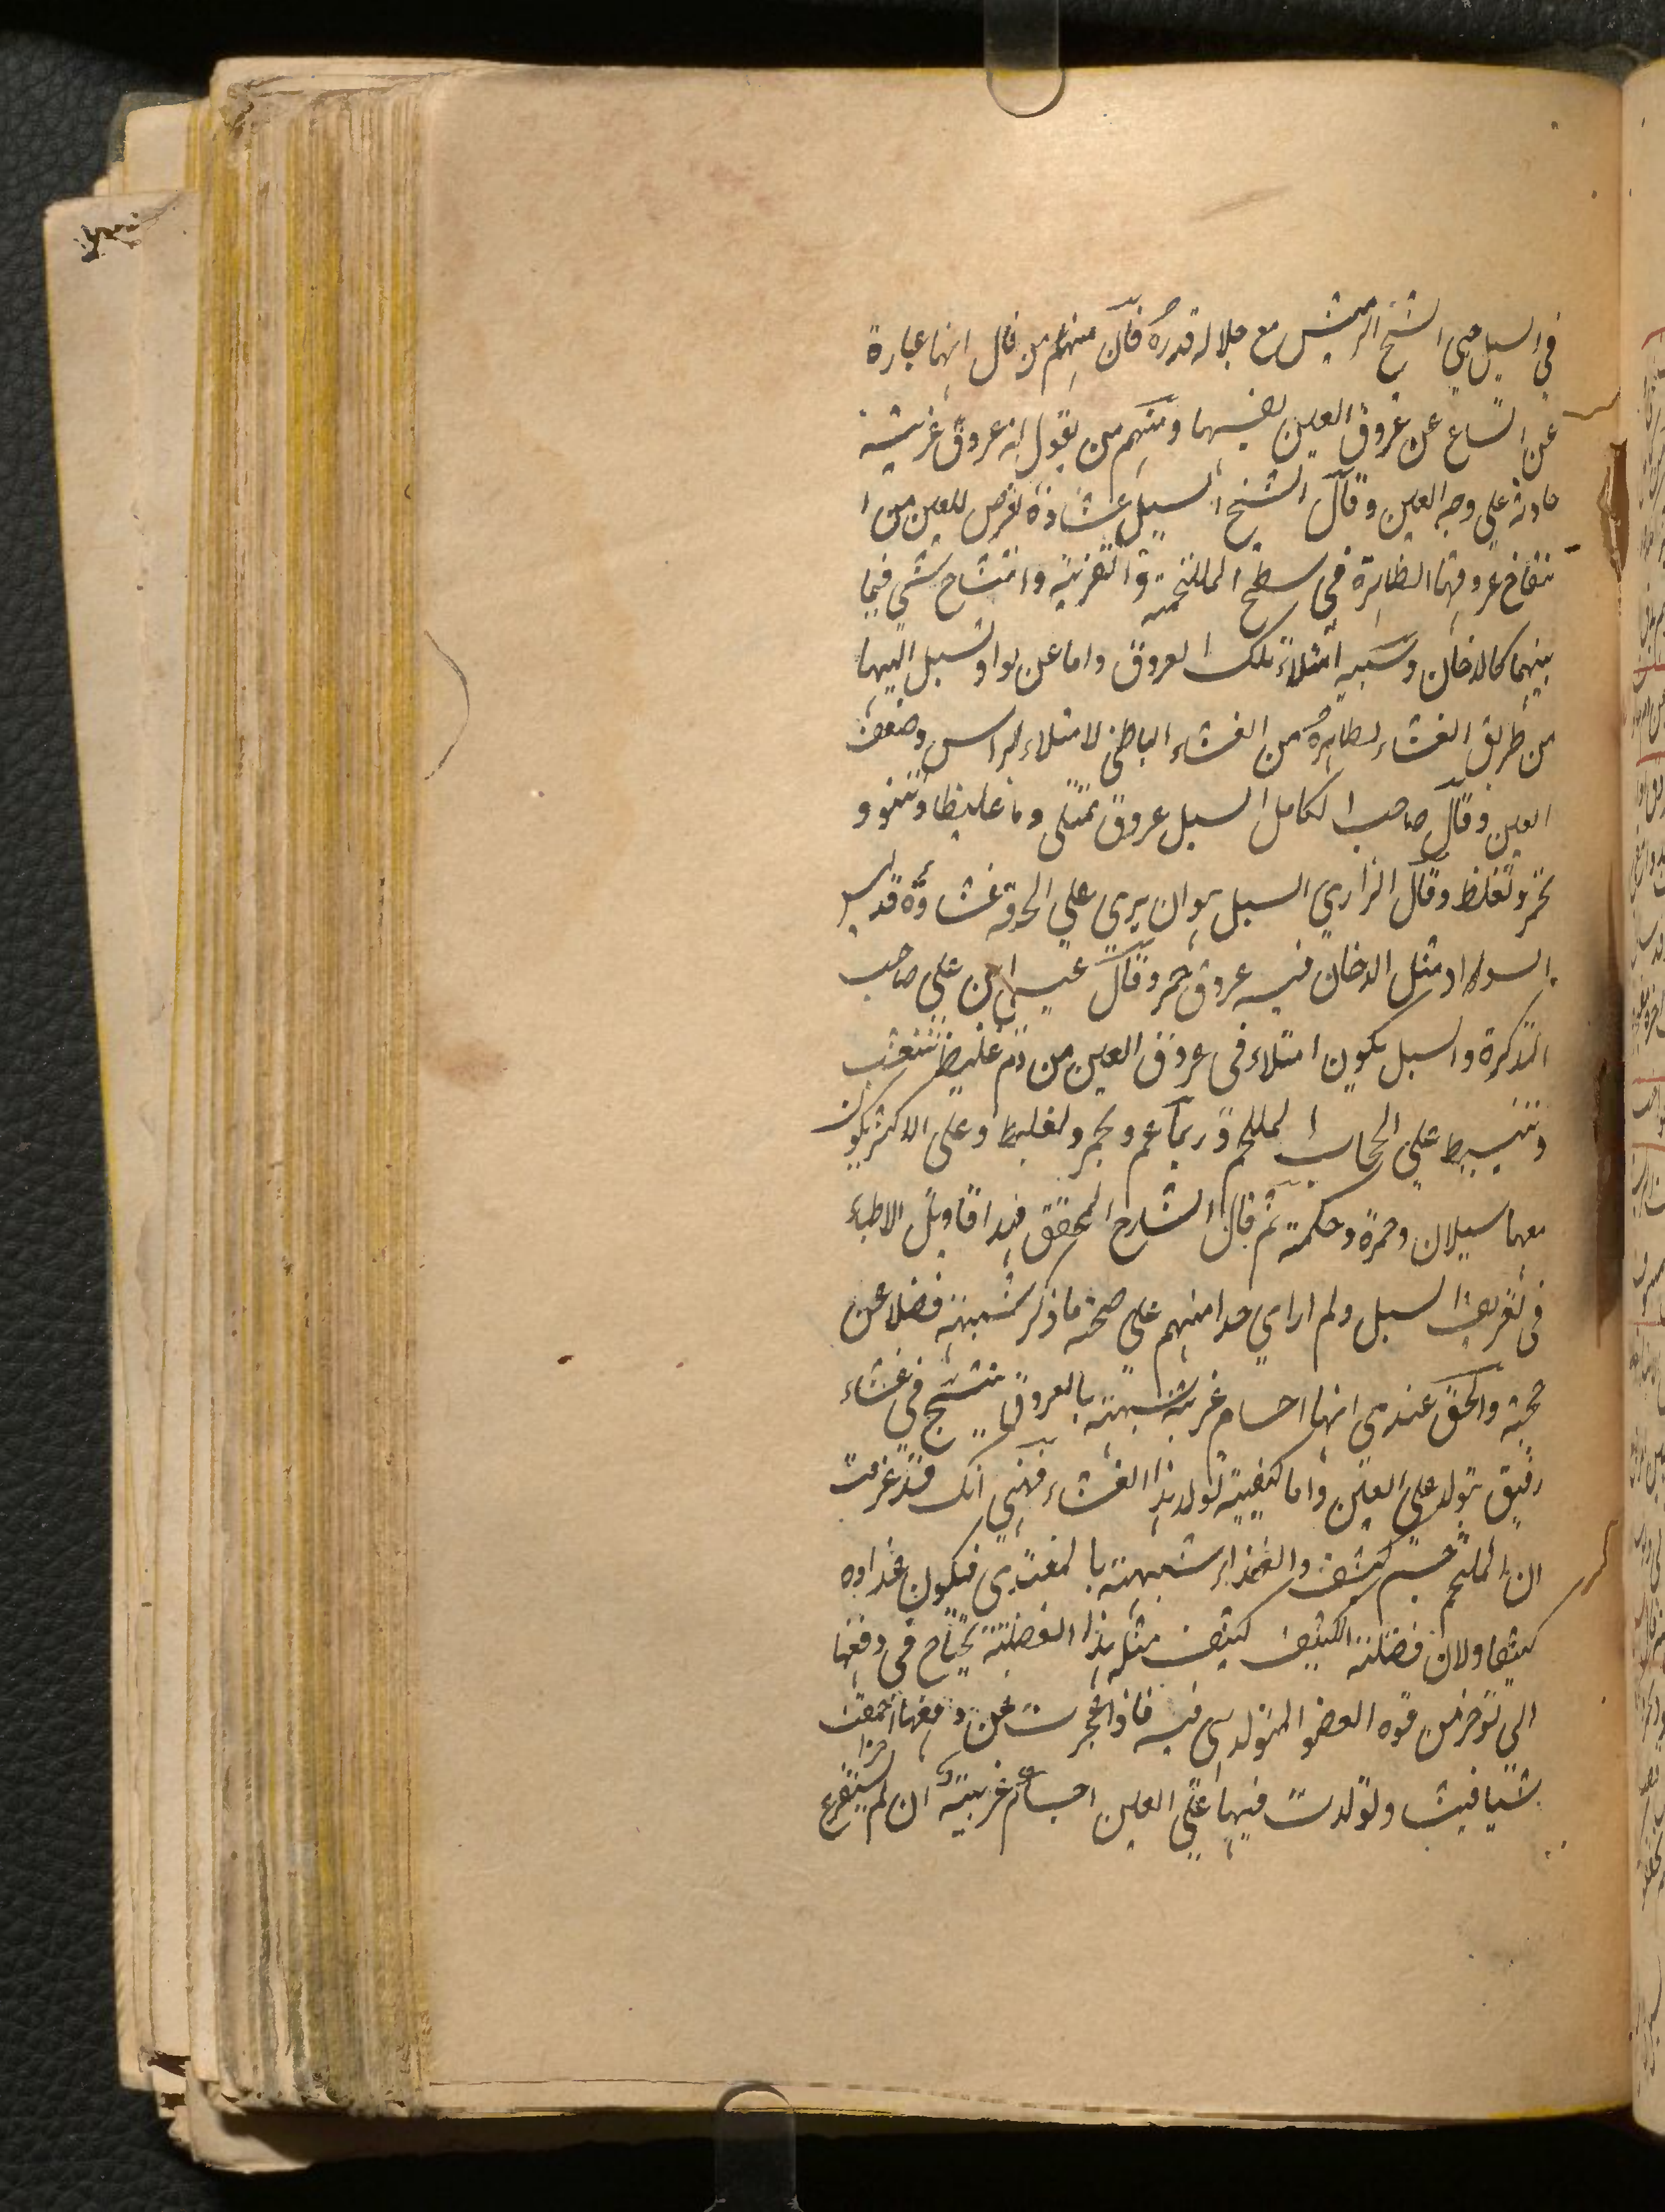 في السبل حتى الشيخ الرئيس مع جلاله قدره فان منهم من قال انها عبارة
عن اتساع عن عروق العين نفسها ومنهم من يقول انه عروق غريبة
حادثة على وجه العين وقال الشيخ السبل غشاوة تعرض للعين من ا
نتفاخ عروقها الظاهرة في سطح الملتحمة والقرنية وانتساج شي فيما
بينهما كالدخان وسببه امتلاء تلك العروق واما عن مواد تسيل اليها
من طريق الغشاء الظاهرة من الغشاء الباطن لامتلاء الراس وضعف
العين وقال صاحب الكامل السبل عروق تمتلى دما غليظا وتنتوو
تحمر وتغلظ وقال الرازي السبل هو ان يرى على الحدقة غشاوة قد لبس
السواد مثل الدخان فيه عروق حمر وقال عيسى بن علي صاحب
التذكرة والسبل يكون امتلاء في عروق العين من دم غليظ تنتشب
وتنبسط على الحجاب الملتحم وربما عم ويحمر ويغلظ وعلى الاكثر يكون
معها سيلان وحمرة وحكمة ثم قال الشارح المحقق هذا اقاويل الاطباء
في تعريف السبل ولم ار احدا منهم على صحة ما ذكر شبهة فضلا عن
حجة والحق عندي انها اجسام غريبة شبيهة بالعروق ينتسج في غشاء
رقيق تتولد على العين واما كيفية تولد هذا الغشاء فهي انك قد عرفت
ان الملتحم جسم كثيف والغذاء شبيهة بالمغتذى فيكون غذاوه
كثيفا ولان فضلة الكثيف كثيف مثله هذا الفضلة تحتاج في دفعها
الى توفر من قوة العضو المتولد هي فيه فاذا عجزت عن دفعها اجتمعت
شيا فيشا وتولدت فيها على العين اجسام غريبة ان لم يستفرغ